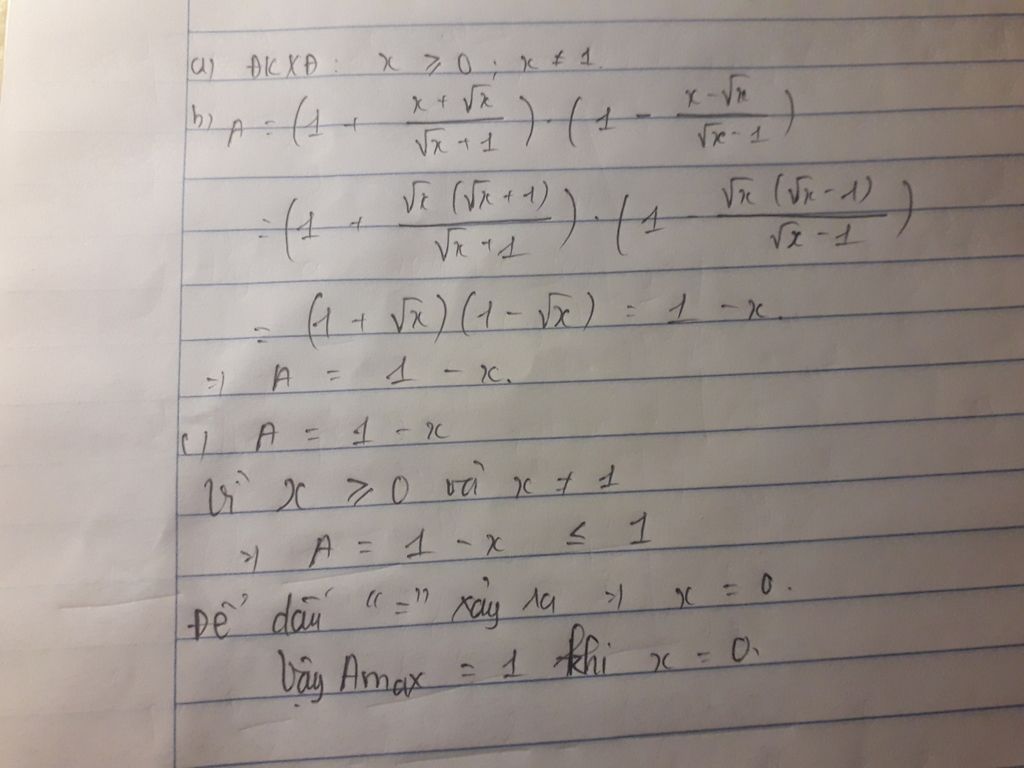 a) ĐKXĐ : x ≥ 0 ; x ≠ 1.
b) A = (1 + (x + √x)/(√x + 1)) . (1 - (x - √x)/(√x - 1))
= (1 + (√x (√x + 1))/(√x + 1)) . (1 - (√x (√x - 1))/(√x - 1))
= (1 + √x) (1 - √x) = 1 - x.
=) A = 1 - x.
c) A = 1 - x
Vì x ≥ 0 và x ≠ 1
=) A = 1 - x ≤ 1
Để dấu "=" xảy ra =) x = 0.
Vậy Amax = 1 khi x = 0.